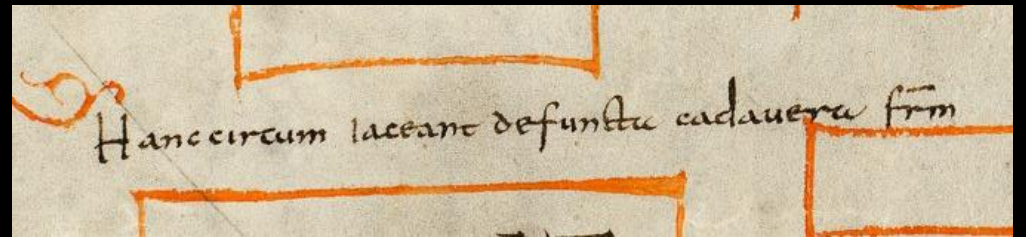 Hanc circum iaceant defuncta cadavera fr̄m